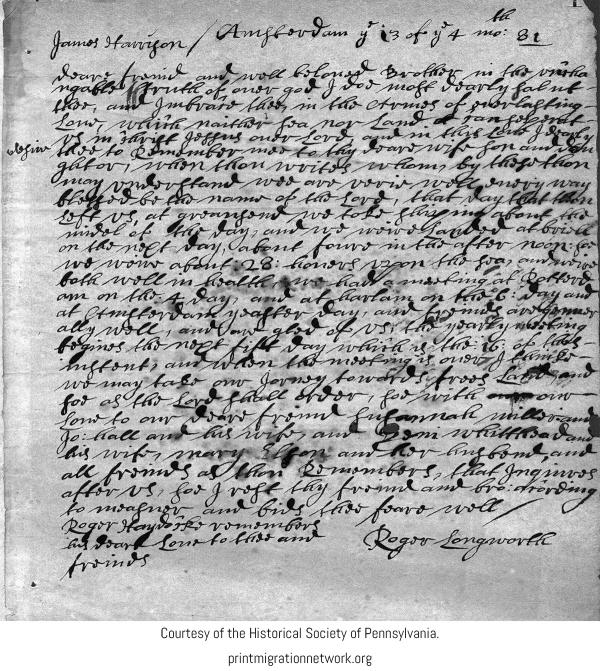 James Harrison / Amsterdam ye 13 of ye 4th mo: 81
deare freind and well beloved Brother in the uncha
ngable truth of over god I doe most dearly salut
thee, and Imbrace thee, in the Armes of everlasting
Love, which neither sea, nor Land can seperat
us in Christ Jesus our Lord, and in this Love I dearly
desire thee to Remember mee to thy deare wife son and dau
ghter, when thou writes whom, by these thou
may understand wee are verie well every way
blessed be the name of the Lord, that day that thou
Left us, at greansend we toke shiping about the
midel of the day, and we weere Landed at briell
on the next day, about foure in the after noon: soe
we weere about 28: houers upon the sea, and weere
both well in health, we had a meeting at Rotterd
am on the 4 day, and at harlam on the 6: day and
at Amsterdam yeaster day, and freinds are gener
ally well, and are gled of us, the yearly meeting
begines the next fift day which is the 16: of this
instent, and when the meeting is over I thinke
we may take our Jorney towards frees Land, and
soe as the Lord shall order, soe with our
Love to our deare freind Susannah miller and
Jo: hall and his wife, and whitthead and
his wife, mary and her husbend, and
all freinds as thou Remembers, that Inquires
after us, soe I rest thy freind and bro: acording
to measuer and bids thee feare well
Roger Haydocke remembers
his deare Love to thee and
freinds
Roger Longworth
Courtesy of the Historical Society of Pennsylvania.
printmigrationnetwork.org